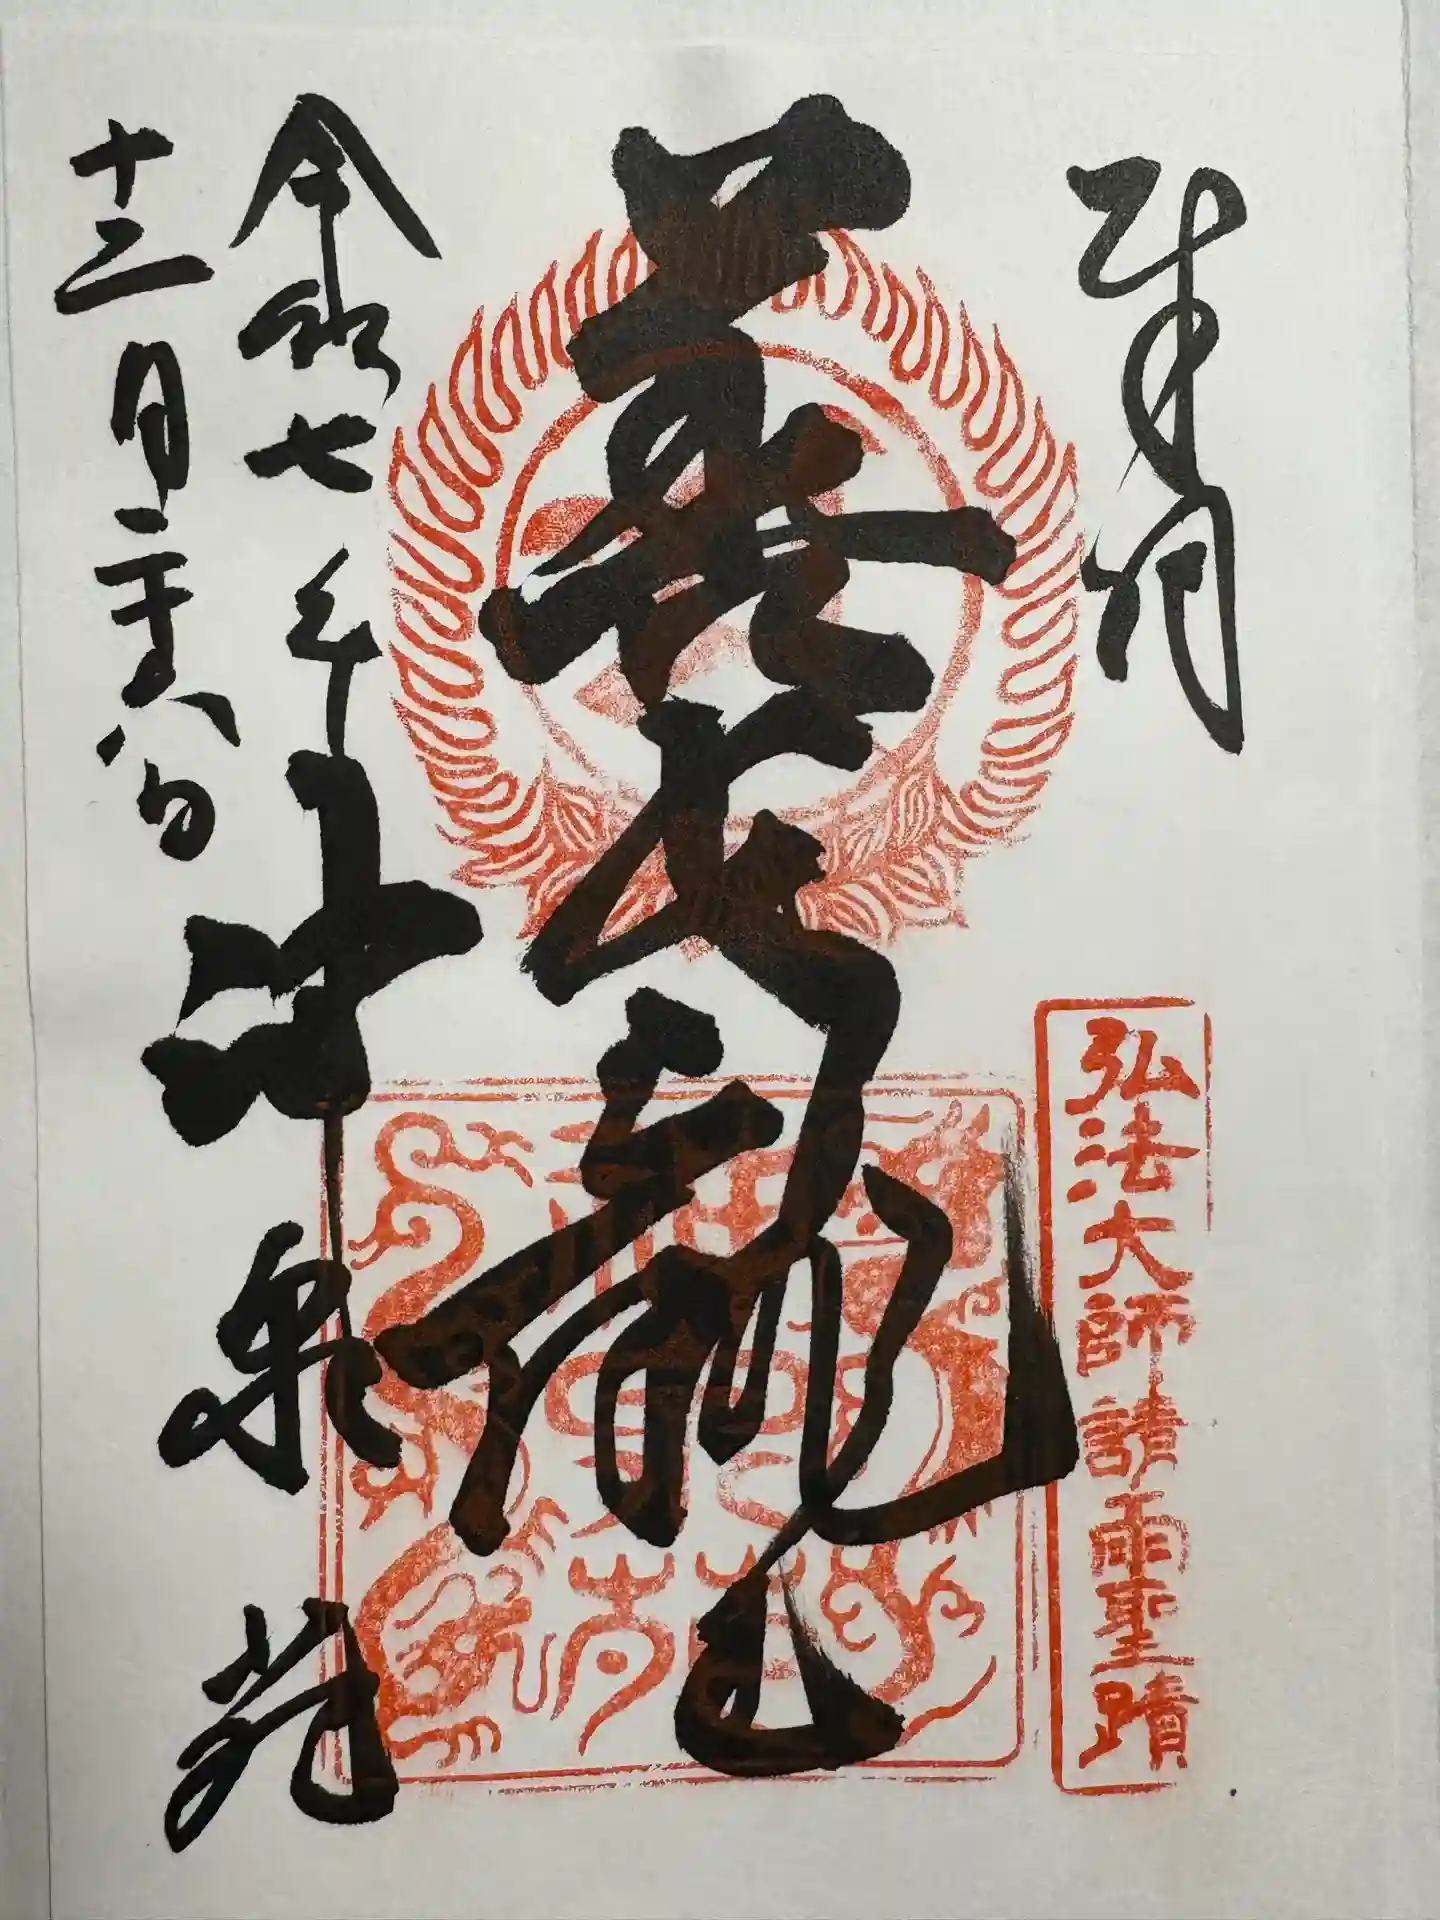 奉拝
弘法大師請雨聖蹟
善女龍王
神泉苑
令和七年
十二月二十八日